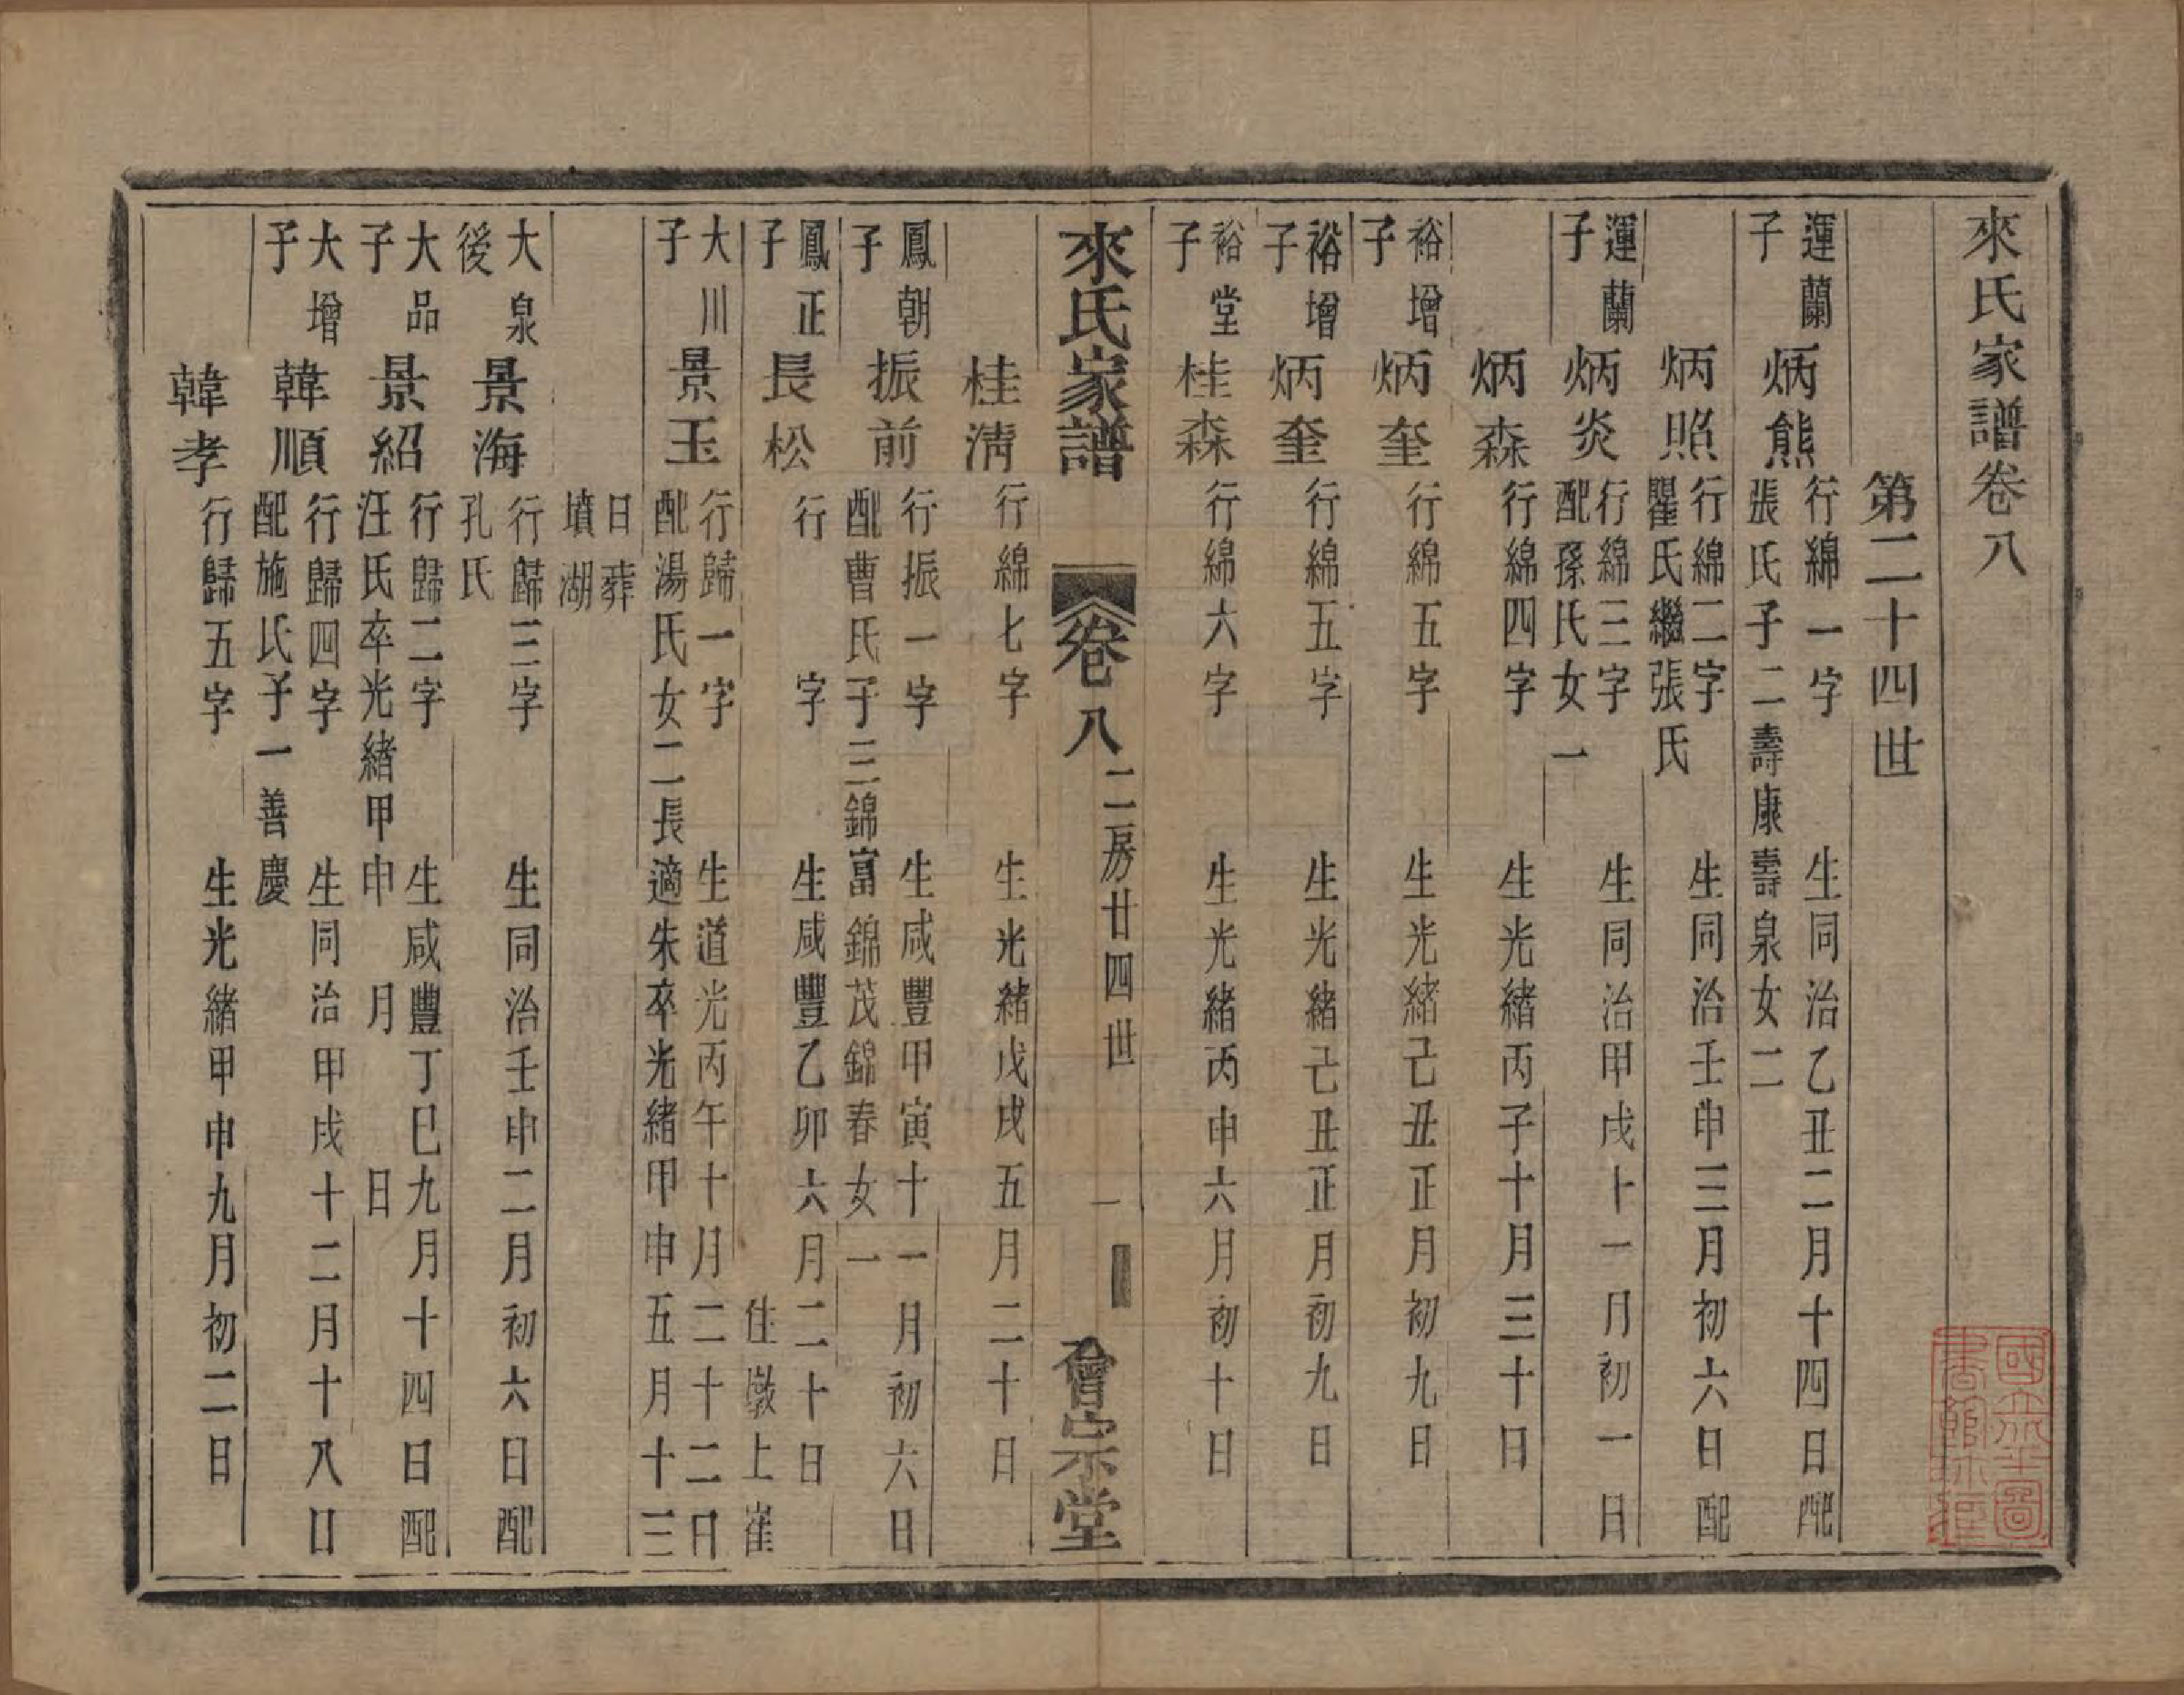 來氏家譜卷八
第二十四世
運蘭子 炳熊 行綿一字 生同治乙丑二月十四日配
張氏子二壽康壽泉女二
炳照 行綿二字 生同治壬申三月初六日配
瞿氏繼張氏
運蘭子 炳炎 行綿三字 生同治甲戌十一月初一日
配孫氏女一
炳森 行綿四字 生光緒丙子十月三十日
裕增子 炳奎 行綿五字 生光緒己丑正月初九日
裕增子 炳奎 行綿五字 生光緒己丑正月初九日
裕堂子 桂森 行綿六字 生光緒丙申六月初十日
來氏家譜 卷八 二房廿四世 一 會宗堂
桂淸 行綿七字 生光緒戊戌五月二十日
鳳朝子 振前 行振一字 生咸豐甲寅十一月初六日
配曹氏子三錦富錦茂錦春女一
鳳正子 長松 行 字 生咸豐乙卯六月二十日
住墩上崔
大川子 景玉 行歸一字 生道光丙午十月二十二日
配湯氏女二長適朱卒光緒甲申五月十三
日葬
墳湖
大泉後 景海 行歸三字 生同治壬申二月初六日配
孔氏
大品子 景紹 行歸二字 生咸豐丁巳九月十四日配
汪氏卒光緒甲申 月 日
大增子 韓順 行歸四字 生同治甲戌十二月十八日
配施氏子一善慶
韓孝 行歸五字 生光緒甲申九月初二日
國立北平圖
書館珍藏